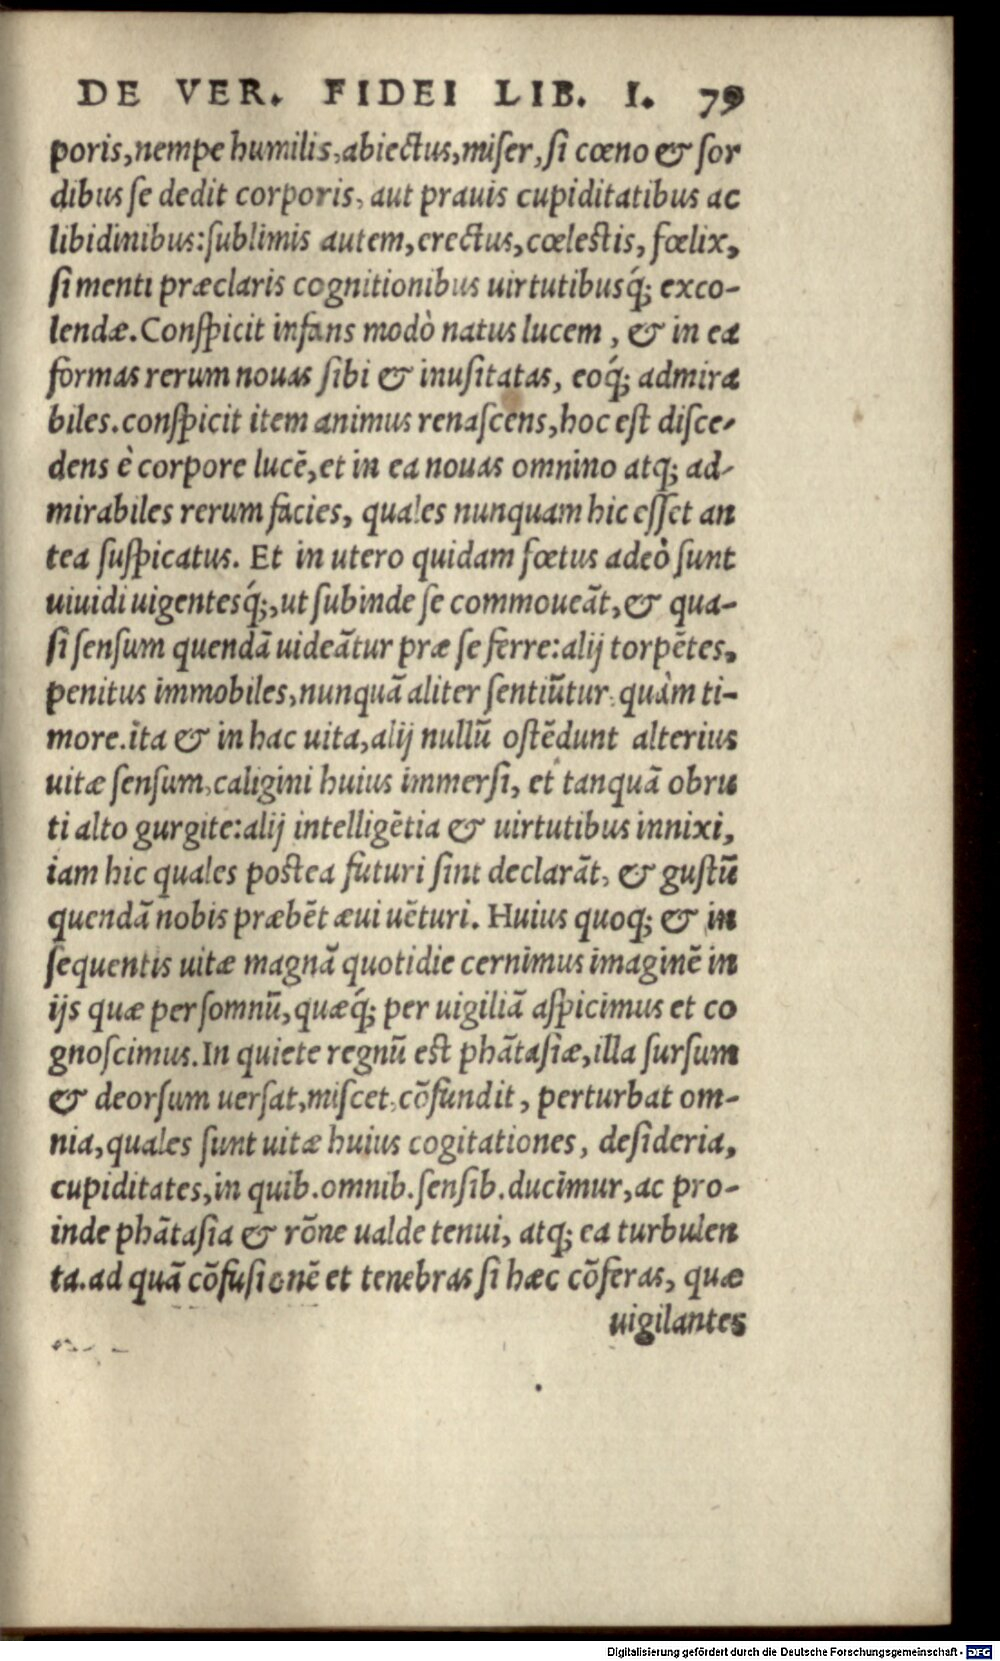 DE VER. FIDEI LIB. I. 79
poris, nempe humilis, abiectus, miser, si cœno & sor
dibus se dedit corporis, aut prauis cupiditatibus ac
libidinibus: sublimis autem, erectus, cœlestis, fœlix,
si menti præclaris cognitionibus uirtutibusq́; exco-
lendæ. Conspicit infans modò natus lucem, & in ea
formas rerum nouas sibi & inusitatas, eoq́; admira
biles. conspicit item animus renascens, hoc est disce-
dens è corpore lucē, et in ea nouas omnino atq; ad-
mirabiles rerum facies, quales nunquam hic esset an
tea suspicatus. Et in utero quidam fœtus adeò sunt
uiuidi uigentesq́;, ut subinde se commoueāt, & qua-
si sensum quendā uideātur præ se ferre: alij torpētes,
penitus immobiles, nunquā aliter sentiūtur quàm ti-
more. ita & in hac uita, alij nullū ostēdunt alterius
uitæ sensum, caligini huius immersi, et tanquā obru
ti alto gurgite: alij intelligētia & uirtutibus innixi,
iam hic quales postea futuri sint declarāt, & gustū
quendā nobis præbēt æui uēturi. Huius quoq; & in
sequentis uitæ magnā quotidie cernimus imaginē in
ijs quæ per somnū, quæq́; per uigiliā aspicimus et co
gnoscimus. In quiete regnū est phātasiæ, illa sursum
& deorsum uersat, miscet, cōfundit, perturbat om-
nia, quales sunt uitæ huius cogitationes, desideria,
cupiditates, in quib. omnib. sensib. ducimur, ac pro-
inde phātasia & rōne ualde tenui, atq; ea turbulen
ta. ad quā cōfusionē et tenebras si hæc cōferas, quæ
uigilantes
Digitalisierung gefördert durch die Deutsche Forschungsgemeinschaft - DFG